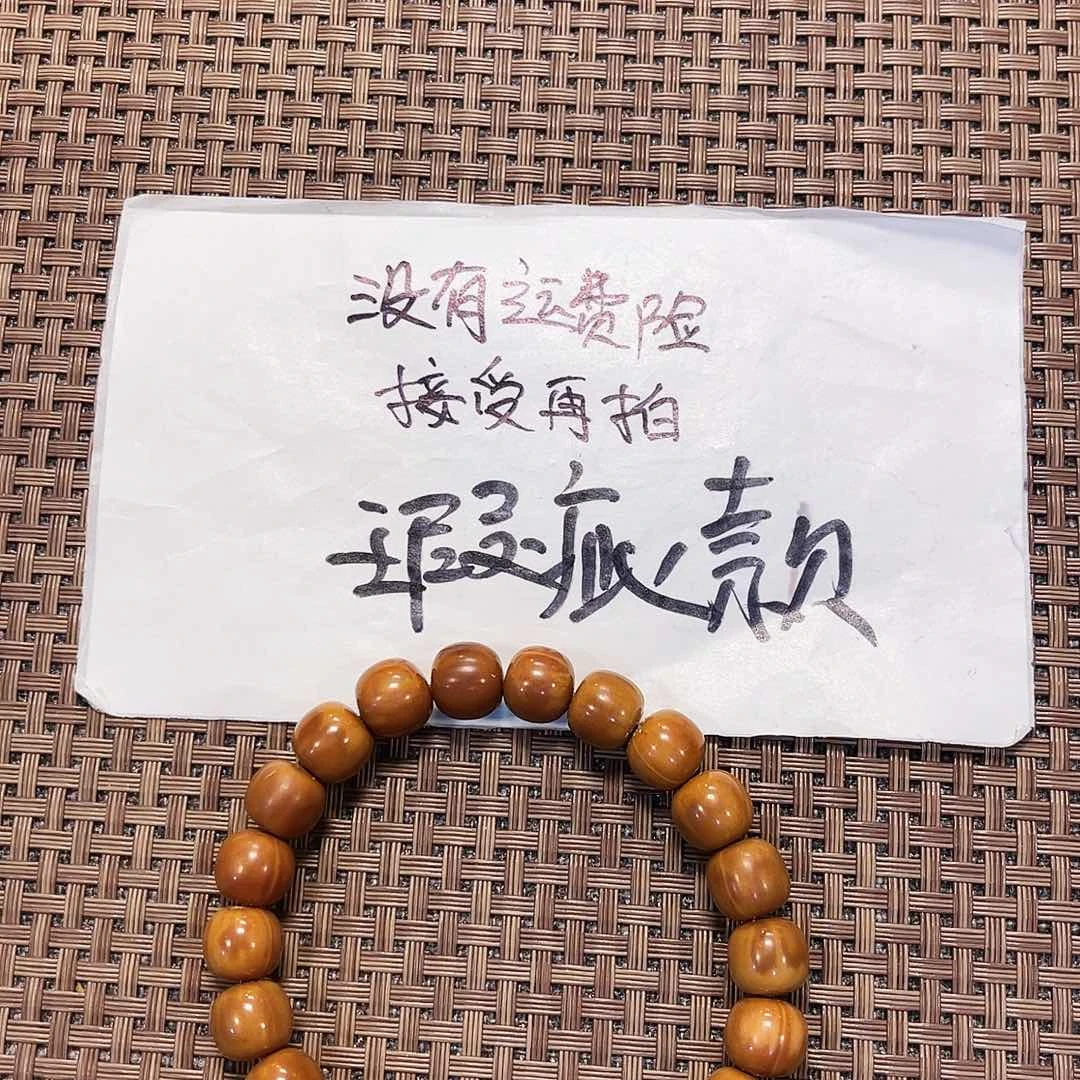 没有运费险
接受再拍
瑕疵款